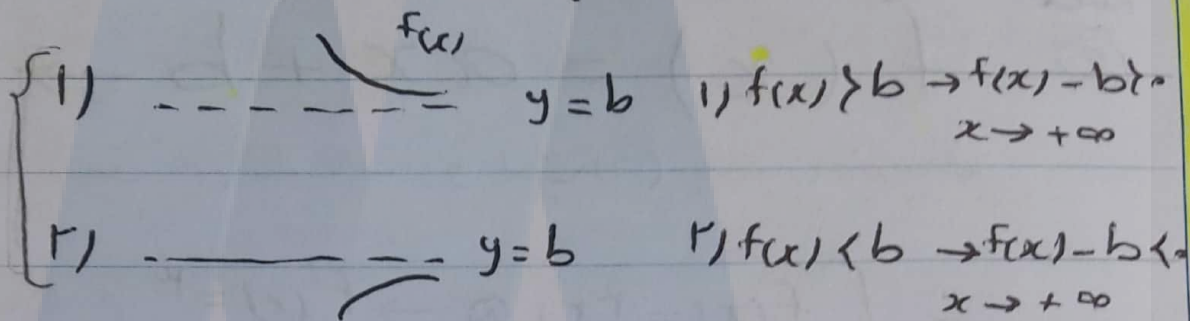 f(x)
۱) y = b ۱) f(x) > b → f(x) - b > ۰
x → +∞
۲) y = b ۲) f(x) < b → f(x) - b < ۰
x → +∞